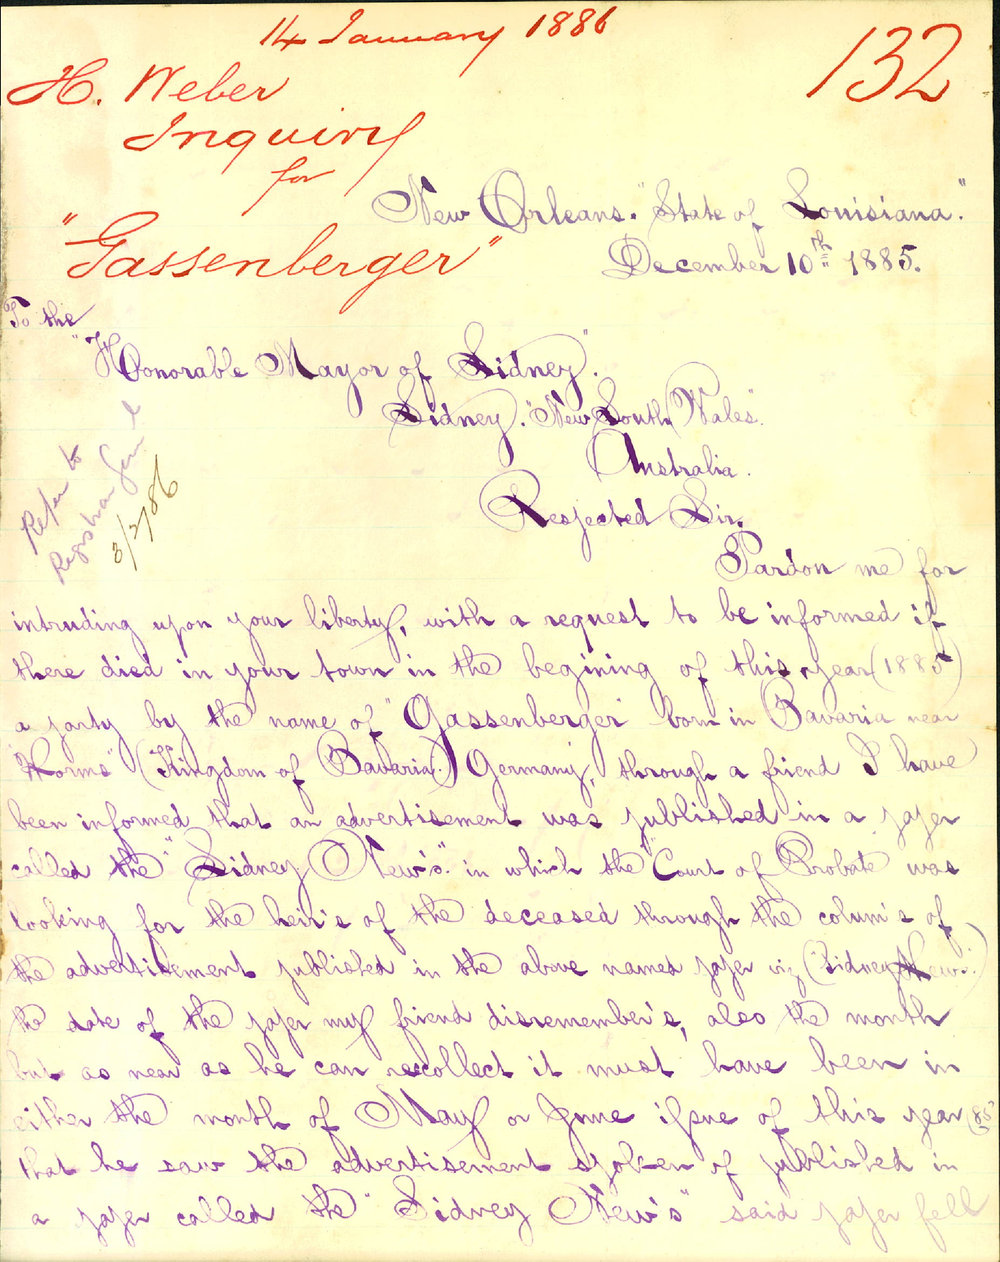 14 January 1886
132
H. Weber
Inquiry
for
"Gassenberger"
New Orleans. "State of Louisiana."
December 10th 1885.
To the
"Honorable Mayor of Sidney".
Sidney. "New South Wales".
Australia.
Respected Sir.
Refer to
Registrar Genl
3/2/86
Pardon me for
intruding upon your liberty, with a request to be informed if
there died in your town in the begining of this year (1885)
a party by the name of "Gassenberger" born in Bavaria near
"Worms" (Kingdom of Bavaria.) Germany, through a friend I have
been informed that an advertisement was published in a paper
called the "Sidney New's." in which the "Court of Probate" was
looking for the heir's of the deceased through the colum's of
the advertisement published in the above named paper viz (Sidney New's.)
the date of the paper my friend disremember's, also the month
but as near as he can recollect it must have been in
either the month of May or June issue of this year (85)
that he saw the advertisement spoken of published in
a paper called the "Sidney New's" said paper fell